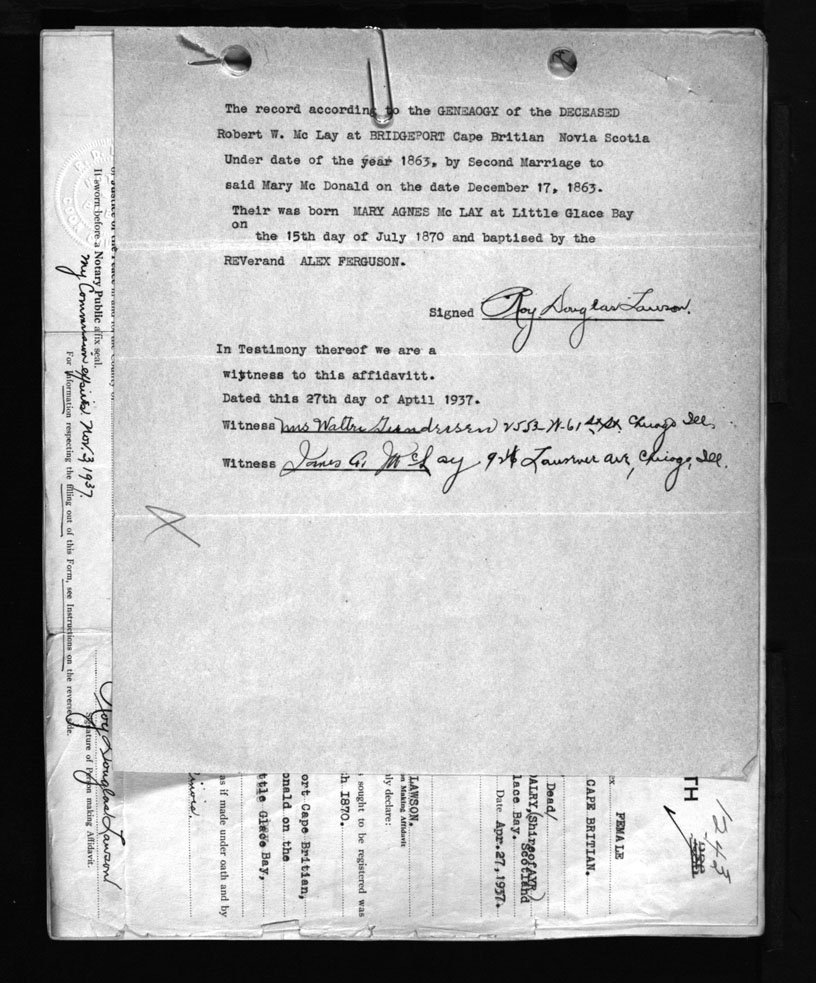 The record according to the GENEAOGY of the DECEASED
Robert W. Mc Lay at BRIDGEPORT Cape Britian Novia Scotia
Under date of the year 1863, by Second Marriage to
said Mary Mc Donald on the date December 17, 1863.
Their was born MARY AGNES Mc LAY at Little Glace Bay
on
the 15th day of July 1870 and baptised by the
REVerand ALEX FERGUSON.
Signed Roy Douglas Lawson.
In Testimony thereof we are a
wittness to this affidavitt.
Dated this 27th day of Aptil 1937.
Witness Mrs Walter 2553 W-61 Chicago Ill.
Witness James A. McLay Ave, Chicago, Ill.
If sworn before a Notary Public affix seal.
My Commission expires Nov. 3 1937.
For information respecting the filling out of this Form, see Instructions on the reverse side.
Roy Douglas Lawson
Signature of Person making Affidavit.
TH
1243
FEMALE
CAPE BRITIAN.
Dead/
ALRY, (Shire of AYR)
Scotland
lace Bay.
Date Apr. 27, 1937.
LAWSON.
on Making Affidavit
ly declare:
sought to be registered was
h 1870.
ort Cape Britian,
onald on the
ttle Glace Bay,
as if made under oath and by
linois.